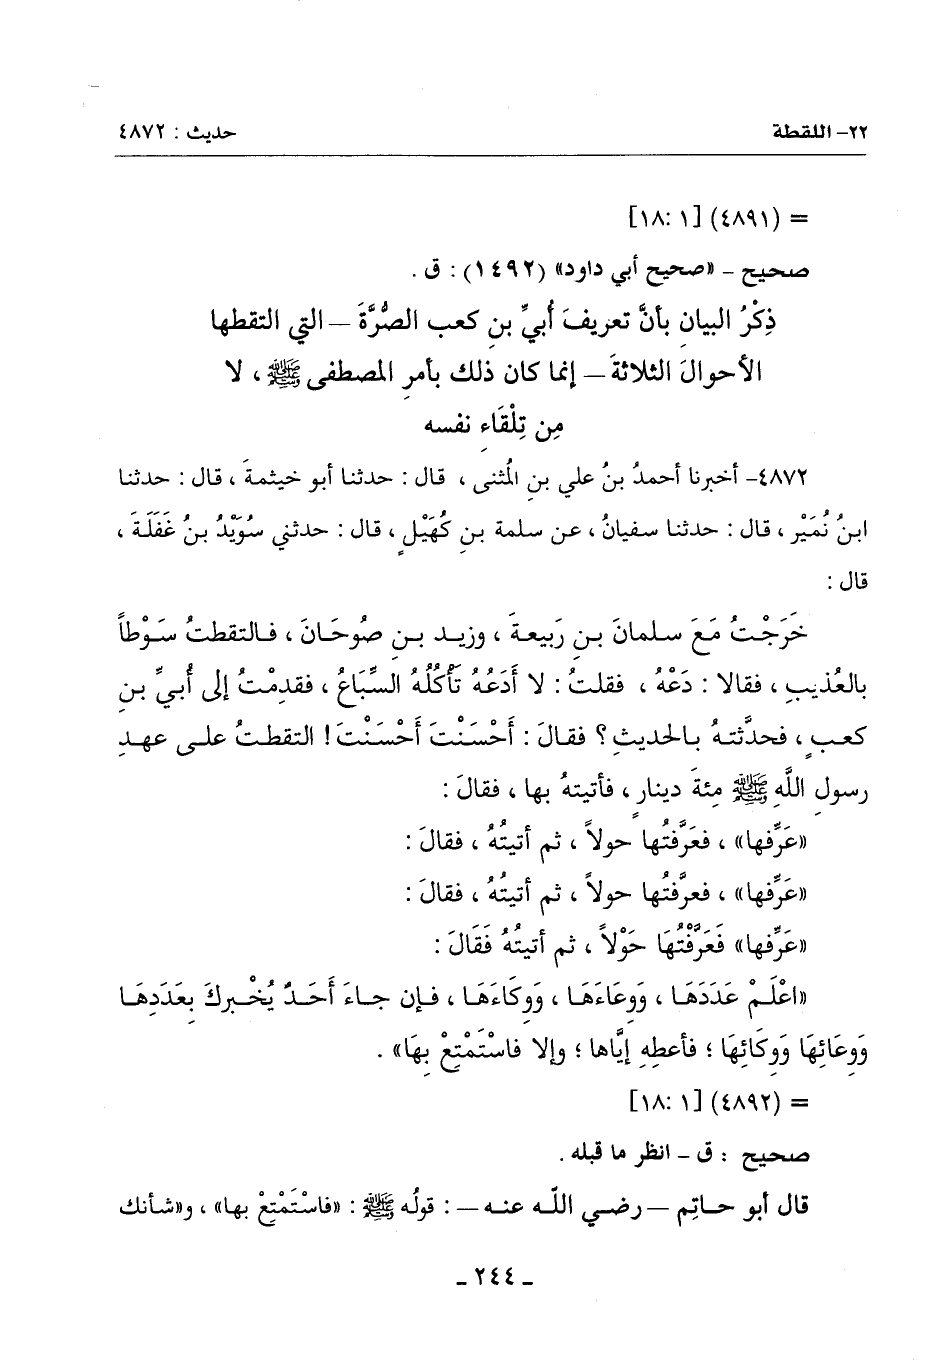 ٢٢- اللقطة
حديث : ٤٨٧٢
= (٤٨٩١) [١ :١٨]
صحيح - «صحيح أبي داود» (١٤٩٢) : ق .
ذِكْرُ البيانِ بأنَّ تعريفَ أُبيِّ بنِ كعب الصُّرَّةَ — التي التقطها
الأحوالَ الثلاثةَ — إنما كان ذلك بأمرِ المصطفى ﷺ ، لا
مِن تِلْقَاءِ نفسه
٤٨٧٢- أخبرنا أحمدُ بنُ علي بنِ المُثنى ، قال : حدثنا أبو خيثمةَ ، قال : حدثنا
ابنُ نُمَيْر ، قال : حدثنا سفيانُ ، عن سلمة بنِ كُهَيْلٍ ، قال : حدثني سُوَيْدُ بنُ غَفَلَةَ ،
قال :
خَرَجْتُ مَعَ سلمانَ بنِ رَبيعةَ ، وزيد بنِ صُوحَانَ ، فالتقطتُ سَوْطاً
بالعُذيبِ ، فقالا : دَعْهُ ، فقلتُ : لا أَدَعُهُ تَأْكُلُهُ السِّبَاعُ ، فقدِمْتُ إلى أُبيِّ بنِ
كعبٍ ، فحدَّثتهُ بالحديثِ ؟ فقالَ : أَحْسَنْتَ أَحْسَنْتَ ! التقطتُ على عهدِ
رسولِ اللَّهِ ﷺ مِئةَ دينارٍ ، فأتيتهُ بها ، فقالَ :
«عَرِّفها» ، فعَرَّفتُها حولاً ، ثم أتيتُهُ ، فقالَ :
«عَرِّفها» ، فعرَّفتُها حولاً ، ثم أتيتُهُ ، فقالَ :
«عَرِّفها» فَعَرَّفْتُهَا حَوْلاً ، ثم أتيتُهُ فَقَالَ :
«اعْلَمْ عَدَدَهَا ، وَوِعَاءَهَا ، وَوِكَاءَهَا ، فإن جاءَ أَحَدٌ يُخْبرِكَ بِعَدَدِهَا
وَوِعَائِهَا وَوِكَائِهَا ؛ فأعطِهِ إيَّاها ؛ وإلا فاسْتَمْتِعْ بِهَا» .
= (٤٨٩٢) [١ :١٨]
صحيح : ق - انظر ما قبله .
قال أبو حاتِم — رضي اللَّه عنه — : قولُه ﷺ : «فاسْتَمْتِعْ بها» ، و«شأنك
- ٢٤٤ -